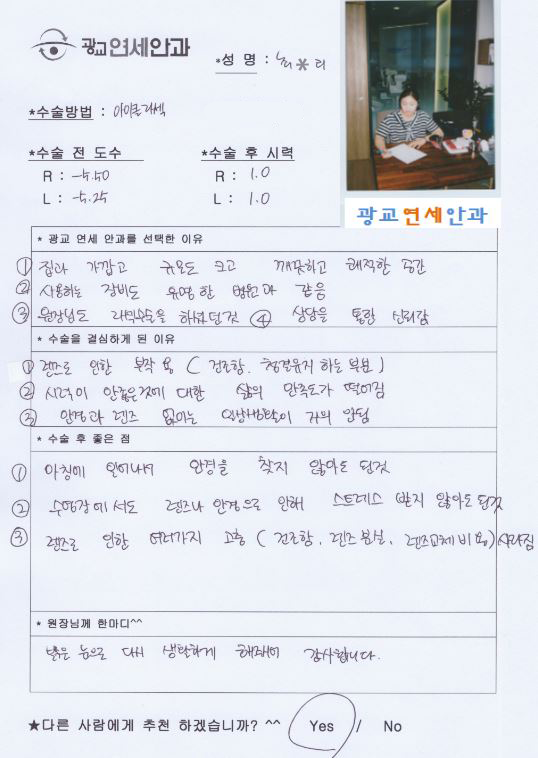 광교연세안과
*성 명 : 노*리
*수술방법 : 아이콘라섹
*수술 전 도수
R : -5.50
L : -5.25
*수술 후 시력
R : 1.0
L : 1.0
광교연세안과
* 광교 연세 안과를 선택한 이유
① 집과 가깝고 규모도 크고 깨끗하고 쾌적한 공간
② 사용하는 장비도 유명한 병원과 같음
③ 원장님도 라식수술을 하셨던것 ④ 상담을 통한 신뢰감
* 수술을 결심하게 된 이유
① 렌즈로 인한 부작용 ( 건조함, 청결유지 하는 부분 )
② 시력이 안좋은것에 대한 삶의 만족도가 떨어짐
③ 안경과 렌즈 없이는 일상생활이 거의 안됨
* 수술 후 좋은 점
① 아침에 일어나서 안경을 찾지 않아도 된것
② 수영장에서도 렌즈나 안경으로 인해 스트레스 받지 않아도 된것
③ 렌즈로 인한 여러가지 고충 ( 건조함, 렌즈분실, 렌즈교체비용) 사라짐
* 원장님께 한마디^^
밝은 눈으로 다시 생활하게 해주셔서 감사합니다.
★다른 사람에게 추천 하겠습니까? ^^ Yes / No